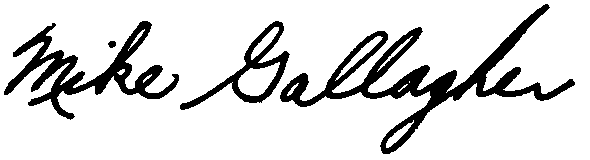 Mike Gallagher